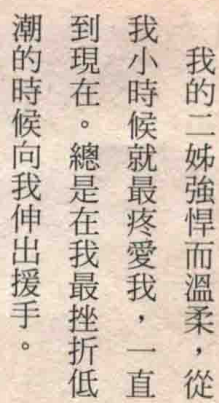 我的二姊強悍而溫柔，從
我小時候就最疼愛我，一直
到現在。總是在我最挫折低
潮的時候向我伸出援手。